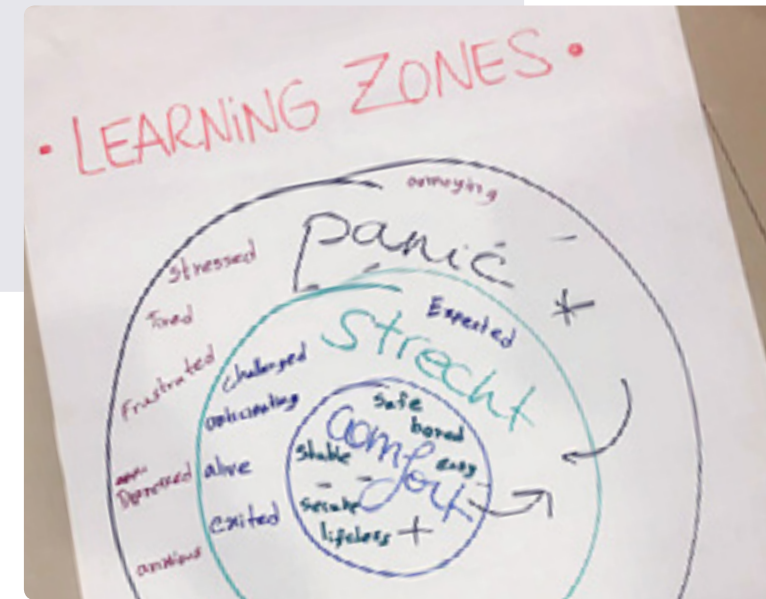 • LEARNiNG ZONES •
annoying
panic
stressed
Tored
Frustrated
Depressed
anxious
+
Strecht
Expected
challenged
anticipating
alive
exited
comfort
Safe
bored
stable
easy
secure
lifeless +